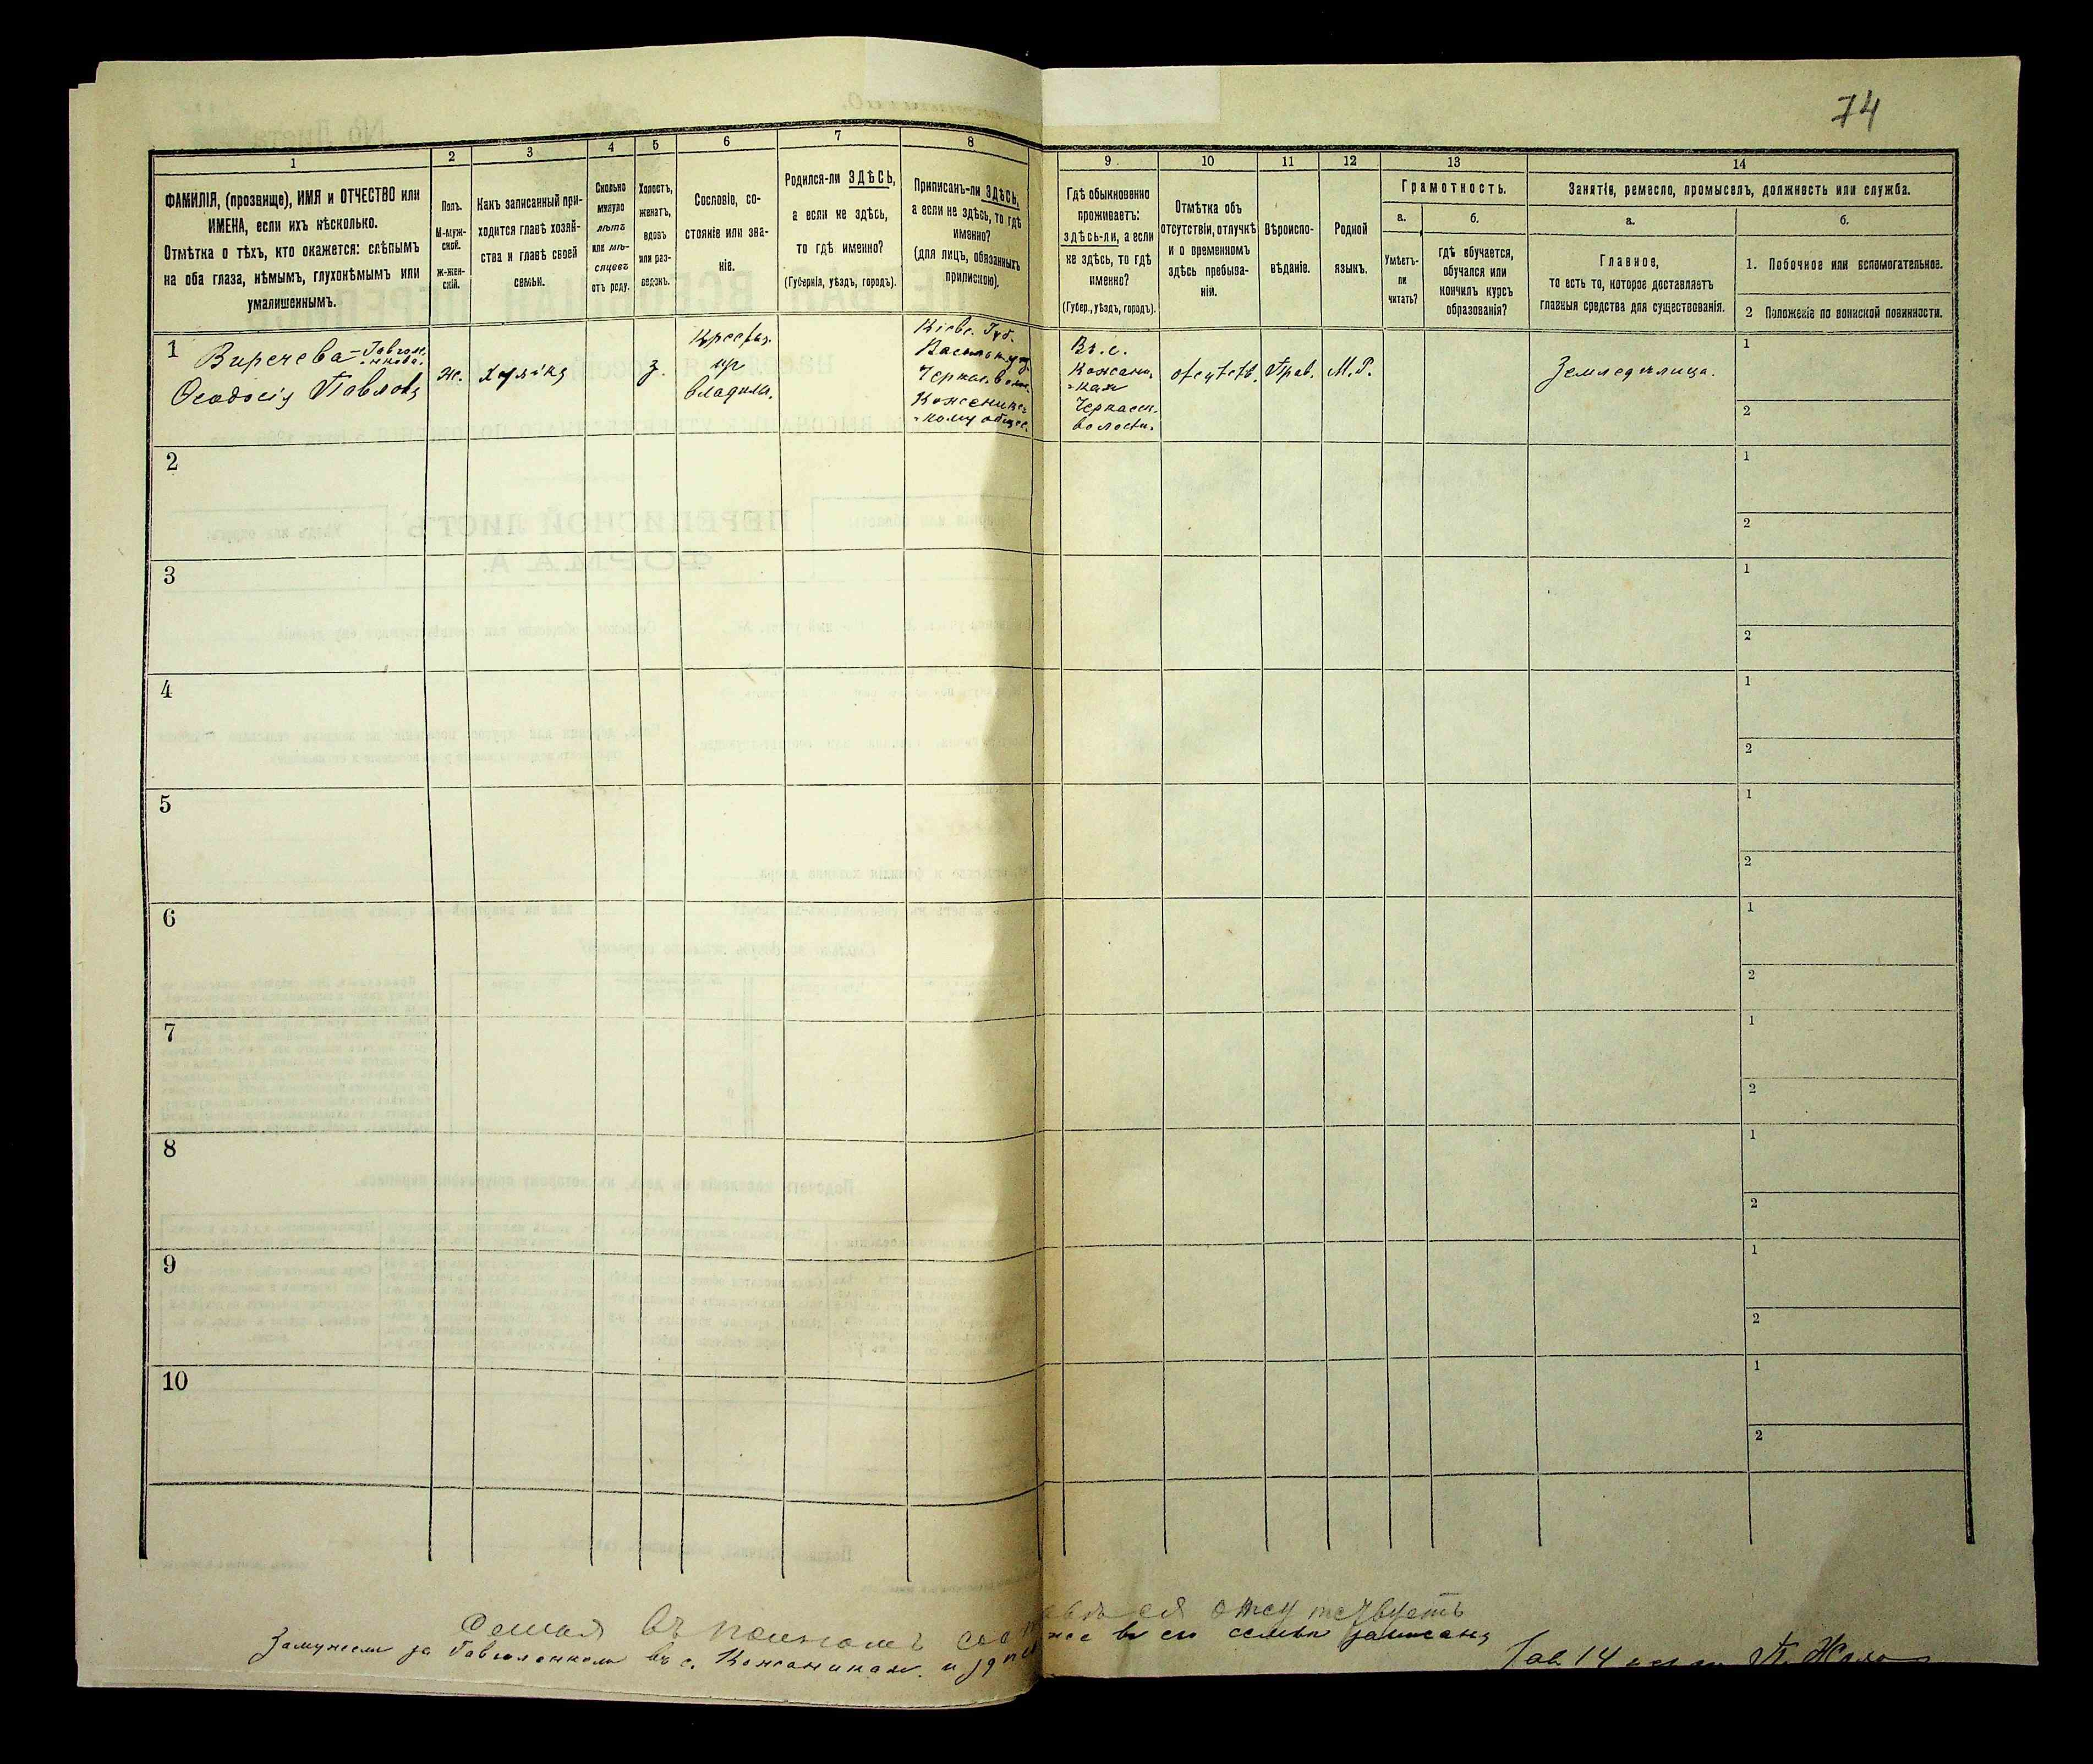 74
1
2
3
4
5
6
7
8
9
10
11
12
13
14
ФАМИЛІЯ, (прозвище), ИМЯ и ОТЧЕСТВО или
ИМЕНА, если ихъ нѣсколько.
Отмѣтка о тѣхъ, кто окажется: слѣпымъ
на оба глаза, нѣмымъ, глухонѣмымъ или
умалишеннымъ.
Полъ.
М-муж-
ской.
Ж-жен-
скій.
Какъ записанный при-
ходится главѣ хозяй-
ства и главѣ своей
семьи.
Сколько
минуло
лѣтъ
или мѣ-
сяцевъ
отъ роду.
Холостъ,
женатъ,
вдовъ
или раз-
веденъ.
Сословіе, со-
стояніе или зва-
ніе.
Родился-ли ЗДѢСЬ,
а если не здѣсь,
то гдѣ именно?
(Губернія, уѣздъ, городъ).
Приписанъ-ли ЗДѢСЬ,
а если не здѣсь, то гдѣ
именно?
(для лицъ, обязанныхъ
припискою).
Гдѣ обыкновенно
проживаетъ:
здѣсь-ли, а если
не здѣсь, то гдѣ
именно?
(Губер., уѣздъ, городъ).
Отмѣтка объ
отсутствіи, отлучкѣ
и о временномъ
здѣсь пребыва-
ніи.
Вѣроиспо-
вѣданіе.
Родной
языкъ.
Грамотность.
а.
Умѣетъ-
ли
читать?
б.
гдѣ обучается,
обучался или
кончилъ курсъ
образованія?
Занятіе, ремесло, промыселъ, должность или служба.
а.
Главное,
то есть то, которое доставляетъ
главныя средства для существованія.
б.
1. Побочное или вспомогательное.
2 Положеніе по воинской повинности.
1
Ѳеодосія Павлова
ж.
з.
Крестья.
владѣль.
Кіевс. Губ.
Васильк. у.
Черкас. волос.
Кожаникс-
-кому общес.
Въ с.
Кожани-
-кахъ
Черкасск.
волости.
отсутств.
Прав.
М.Р.
Земледѣлица.
1
2
2
1
2
3
1
2
4
1
2
5
1
2
6
1
2
7
1
2
8
1
2
9
1
2
10
1
2
Семья въ полномъ отсутствуетъ
Замужем за Гавриленком въ с. Кожаниках. и въ его семьи записана